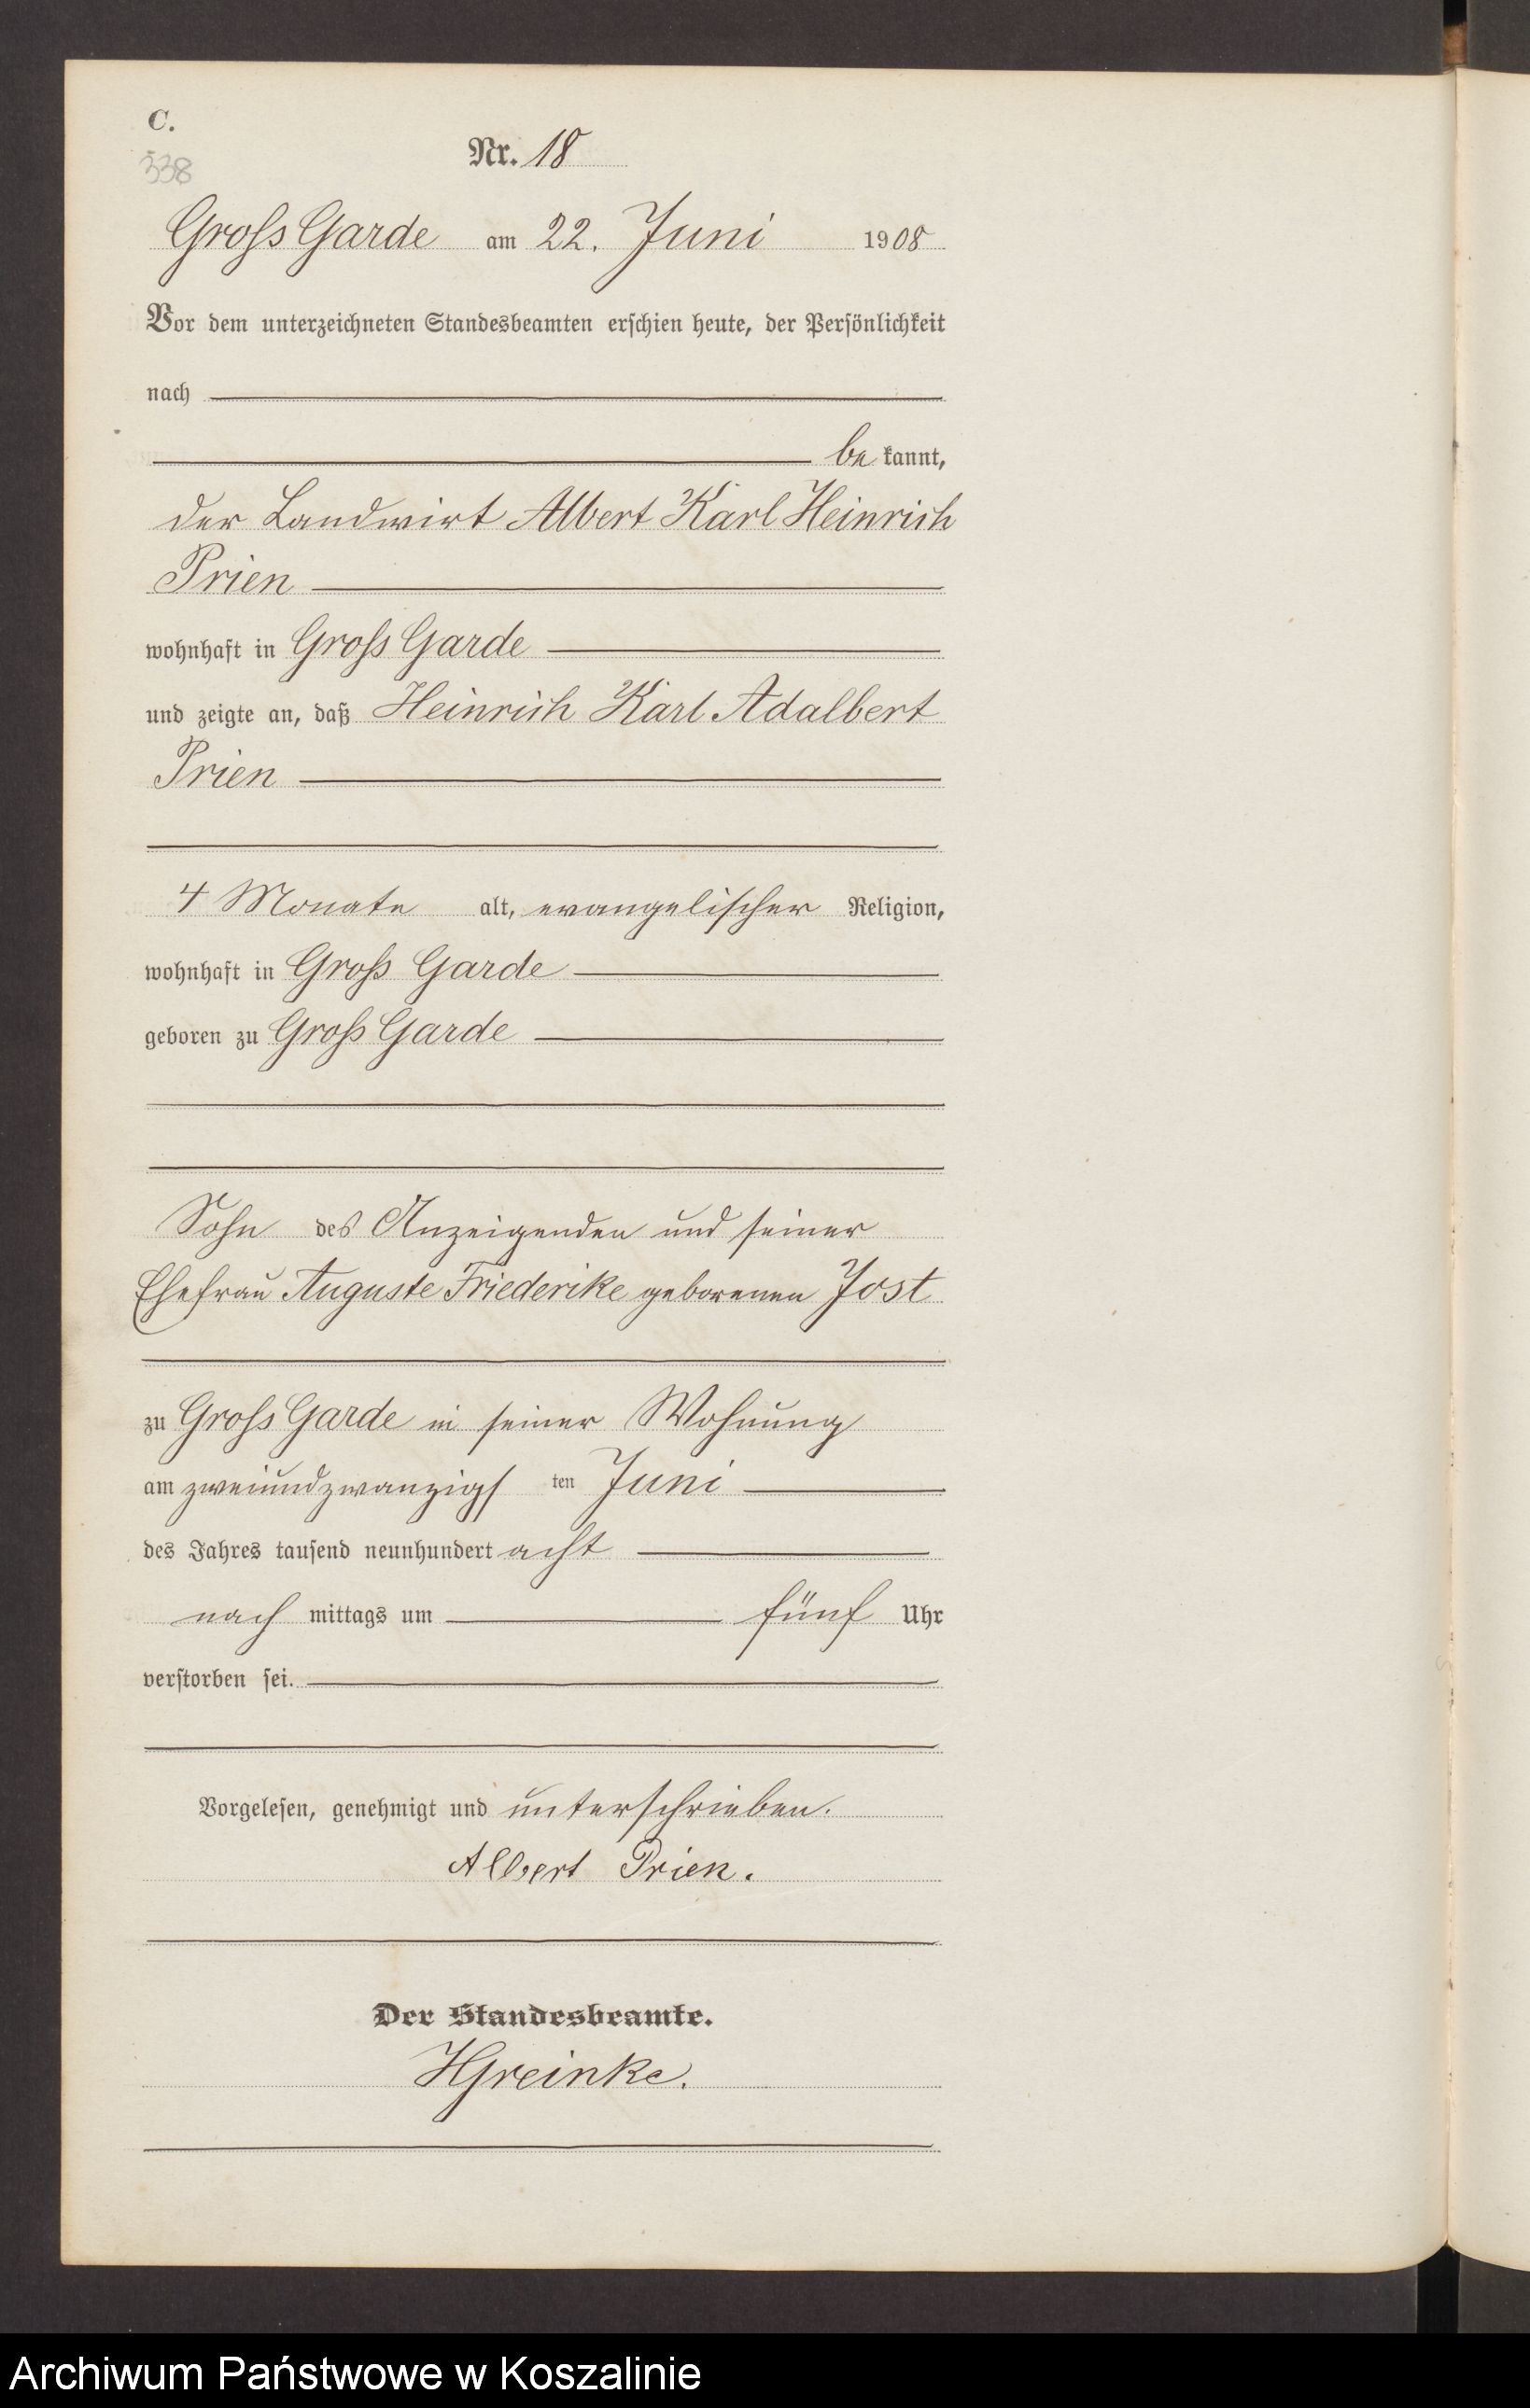 C.
338
Nr. 18
Gross Garde am 22. Juni 1908
Vor dem unterzeichneten Standesbeamten erschien heute, der Persönlichkeit
nach
be kannt,
der Landwirt Albert Karl Heinrich
Prien
wohnhaft in Gross Garde
und zeigte an, daß Heinrich Karl Adalbert
Prien
4 Monate alt, evangelischer Religion,
wohnhaft in Gross Garde
geboren zu Gross Garde
Sohn des Anzeigenden und seiner
Ehefrau Auguste Friederike geborenen Jost
zu Gross Garde in seiner Wohnung
am zweiundzwanzigs ten Juni
des Jahres tausend neunhundert acht
nach mittags um fünf Uhr
verstorben sei.
Vorgelesen, genehmigt und unterschrieben.
Albert Prien.
Der Standesbeamte.
HGreinke.
Archiwum Państwowe w Koszalinie